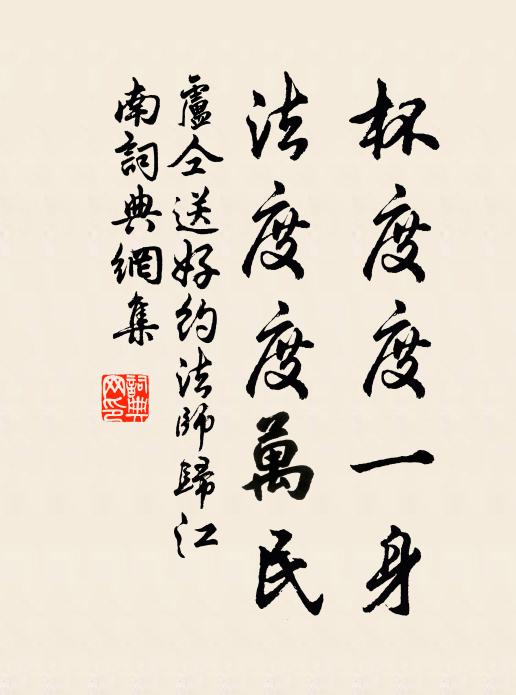 杯度度一身
法度度萬民
盧仝送好約法師歸江
南詞典網集
詞典
网印